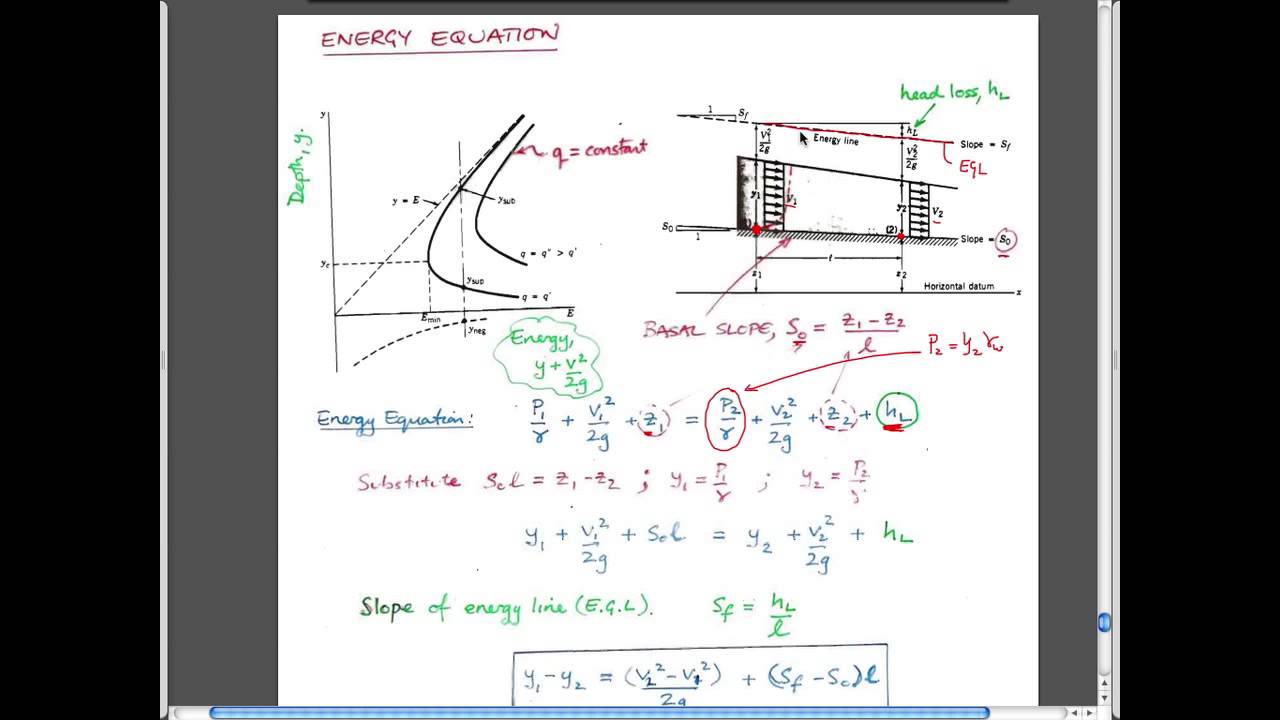 ENERGY EQUATION
y
Depth, y.
q = constant
y = E
ysub
yc
q = q" > q'
ysup
q = q'
Emin
E
yneg
Energy,
y + V²/2g
head loss, hL
1
Sf
V₁²/2g
Energy line
hL
V₂²/2g
Slope = Sf
EGL
y₁
V₁
y₂
V₂
S₀
1
(2)
Slope = S₀
l
z₁
z₂
Horizontal datum
x
BASAL SLOPE, S₀ = (z₁ - z₂)/l
P₂ = y₂ γw
Energy Equation: P₁/γ + V₁²/2g + z₁ = P₂/γ + V₂²/2g + z₂ + hL
Substitute S₀l = z₁ - z₂ ; y₁ = P₁/γ ; y₂ = P₂/γ
y₁ + V₁²/2g + S₀l = y₂ + V₂²/2g + hL
Slope of energy line (E.G.L). Sf = hL/l
y₁ - y₂ = (V₂² - V₁²)/2g + (Sf - S₀)l